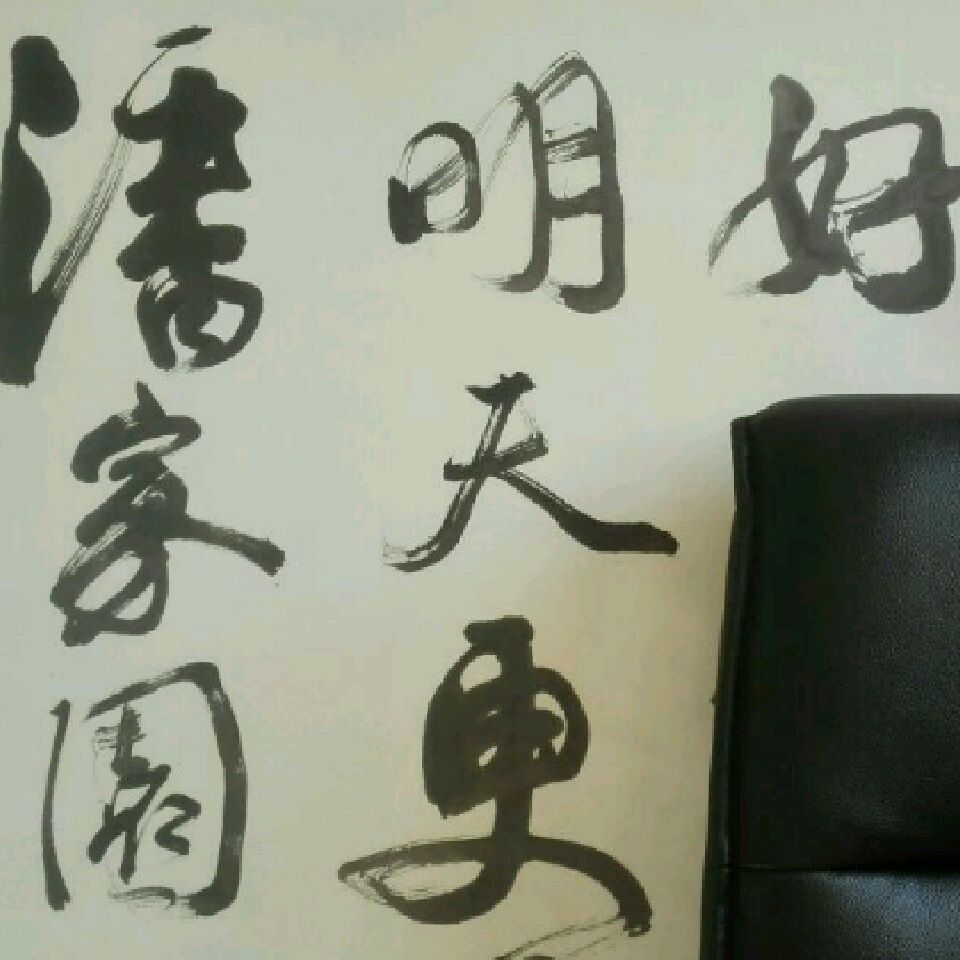 潘家園
明天更
好